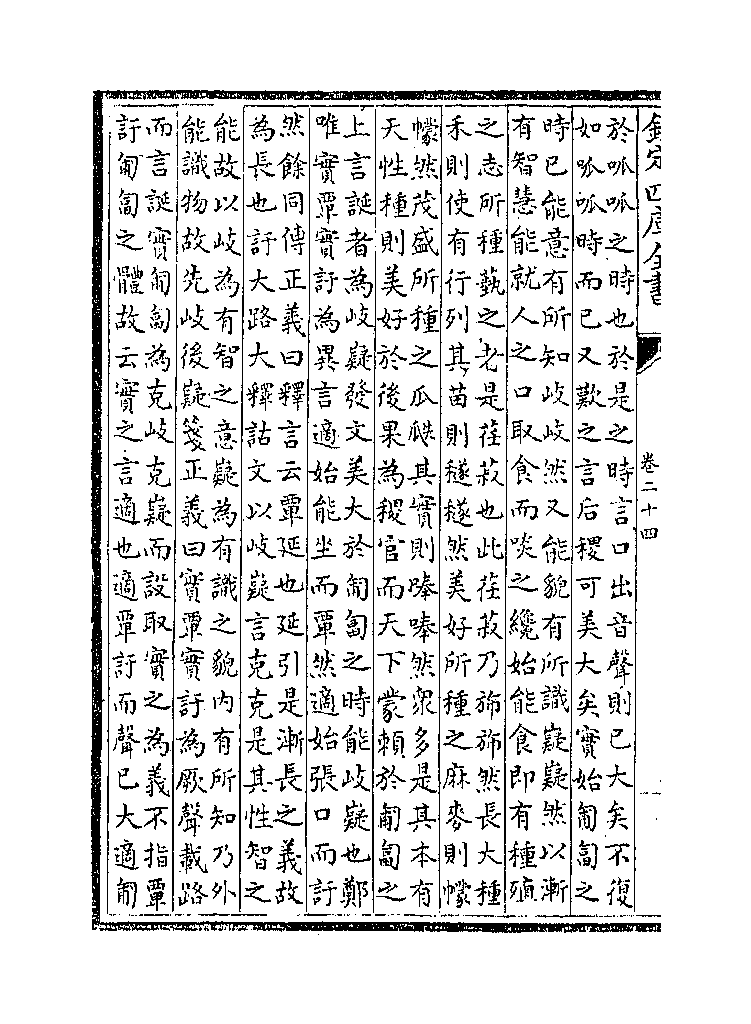 欽定四庫全書
卷二十四
於呱呱之時也於是之時言口出音聲則已大矣不復
如呱呱時而已又歎之言后稷可美大矣實始匍匐之
時已能意有所知岐岐然又能貌有所識嶷嶷然以漸
有智慧能就人之口取食而啖之纔始能食即有種殖
之志所種蓺之者是荏菽也此荏菽乃斾斾然長大種
禾則使有行列其苗則穟穟然美好所種之麻麥則幪
幪然茂盛所種之瓜瓞其實則唪唪然衆多是其本有
天性種則美好於後果為稷官而天下蒙賴於匍匐之
上言誕者為岐嶷發文美大於匍匐之時能岐嶷也鄭
唯實覃實訏為異言適始能坐而覃然適始張口而訏
然餘同傳正義曰釋言云覃延也延引是漸長之義故
為長也訏大路大釋詁文以岐嶷言克克是其性智之
能故以岐為有智之意嶷為有識之貌内有所知乃外
能識物故先岐後嶷箋正義曰實覃實訏為厥聲載路
而言誕實匍匐為克岐克嶷而設取實之為義不指覃
訏匍匐之體故云實之言適也適覃訏而聲已大適匍